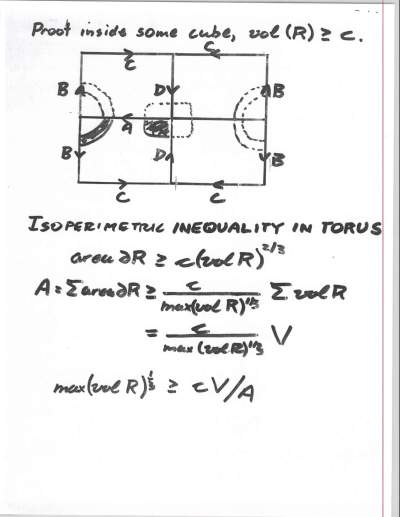 Proof inside some cube, vol(R) ≥ c.
C
C
B
D
B
A
B
D
B
C
C
ISOPERIMETRIC INEQUALITY IN TORUS
area ∂R ≥ c(vol R)^2/3
A = Σ area ∂R ≥ c / max(vol R)^1/3 Σ vol R
= c / max (vol R)^1/3 V
max(vol R)^1/3 ≥ cV/A